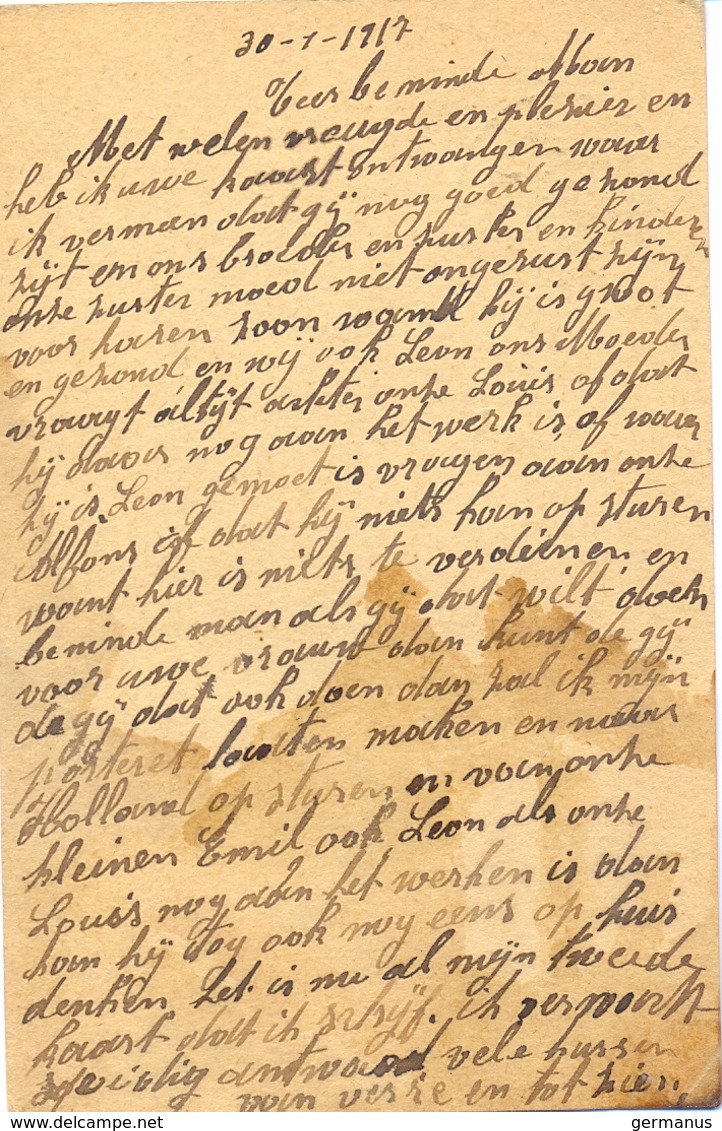 30-7-1917
Teer beminde Man
Met velen vreugde en plezier en
heb ik uwe kaart ontvangen waar
ik verman dat gij nog goed gezond
zijt en ons broeder en zuster en kinder
onze zuster moed niet ongerust zijn
voor haren zoon want hij is groot
en gezond en wij ook Leon ons Moeder
vraagt altijt achter onze Louis of dat
hij daar nog aan het werk is, of waar
hij is Leon gemoet is vragen aan onze
Alfons is dat hij niets kan op sturen
want hier is niets te verdeinen en
beminde man als gij dat wilt doen
voor uwe vrouw dan kunt de gij
de gij dat ook doen dan zal ik mijn
porteret laaten maken en naar
Holland op sturen en van onze
kleinen Emil ook Leon als onze
Louis nog aan het werken is dan
kan hij tog ook nog eens op huis
denken het is nu al mijn tweede
kaart dat ik schrijf. ik verwacht
spoidig antwoord vele kussen
van verre en tot hier,
germanus